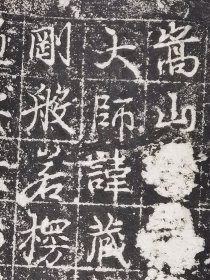 嵩山
大師諱藏
剛般若楞